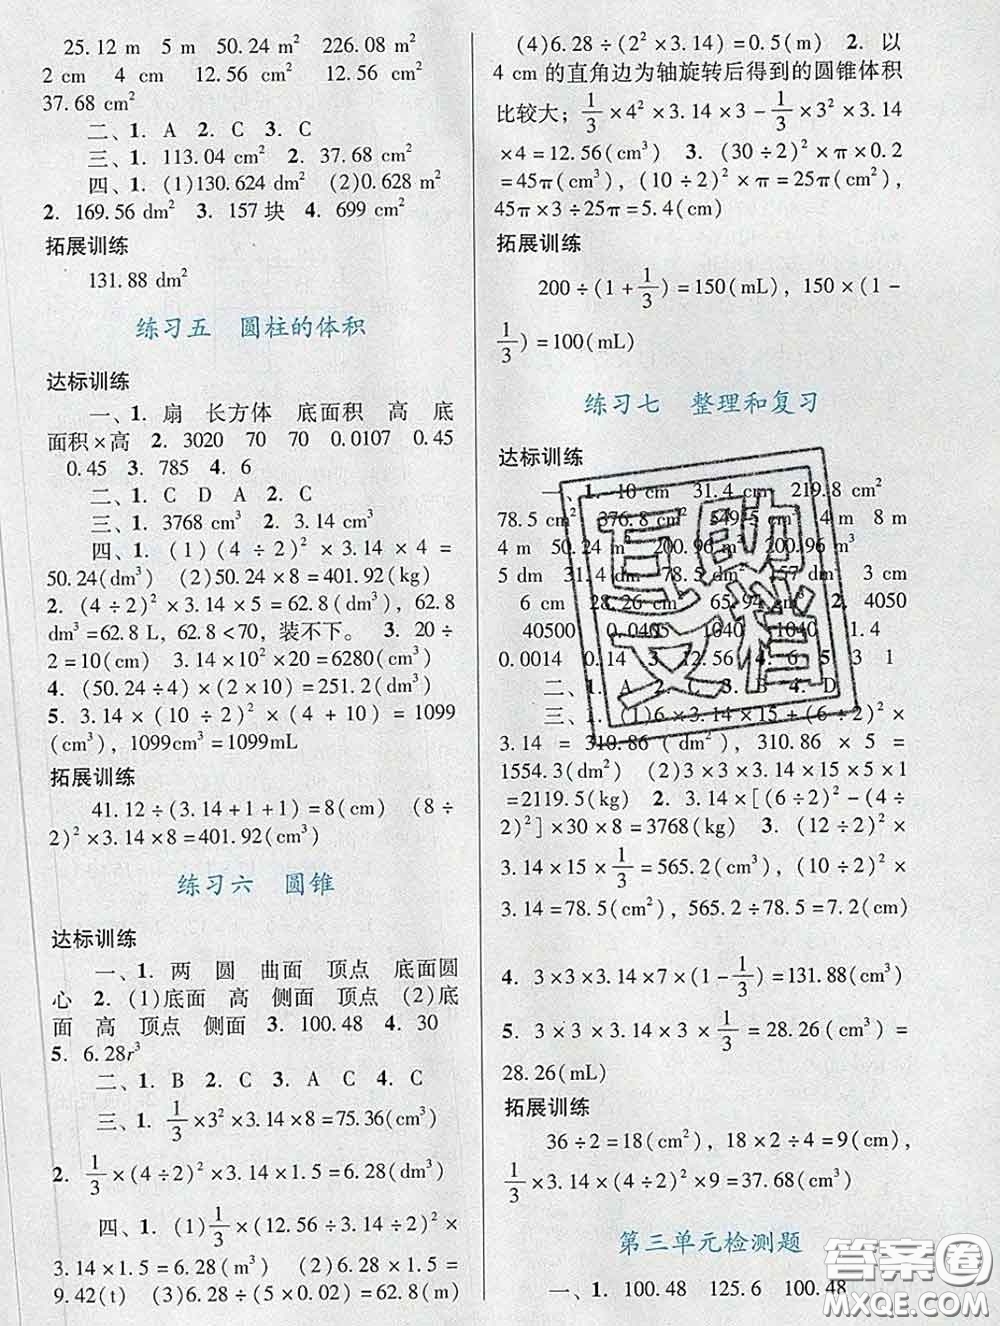 25.12 m 5 m 50.24 m² 226.08 m²
2 cm 4 cm 12.56 cm² 12.56 cm²
37.68 cm²
二、1. A 2. C 3. C
三、1. 113.04 cm² 2. 37.68 cm²
四、1. (1)130.624 dm² (2)0.628 m²
2. 169.56 dm² 3. 157块 4. 699 cm²
拓展训练
131.88 dm²
练习五 圆柱的体积
达标训练
一、1. 扇 长方体 底面积 高 底
面积×高 2. 3020 70 70 0.0107 0.45
0.45 3. 785 4. 6
二、1. C D A 2. C
三、1. 3768 cm³ 2. 3.14 cm³
四、1. (1) (4÷2)²×3.14×4=
50.24(dm³) (2)50.24×8=401.92(kg)
2. (4÷2)²×3.14×5=62.8(dm³), 62.8
dm³=62.8 L, 62.8<70, 装不下。 3. 20÷
2=10(cm) 3.14×10²×20=6280(cm³)
4. (50.24÷4)×(2×10)=251.2(dm³)
5. 3.14×(10÷2)²×(4+10)=1099
(cm³), 1099cm³=1099mL
拓展训练
41.12÷(3.14+1+1)=8(cm) (8÷
2)²×3.14×8=401.92(cm³)
练习六 圆锥
达标训练
一、1. 两 圆 曲面 顶点 底面圆
心 2. (1)底面 高 侧面 顶点 (2)底
面 高 顶点 侧面 3. 100.48 4. 30
5. 6.28r³
二、1. B 2. C 3. A C 4. C
三、1. 1/3×3²×3.14×8=75.36(cm³)
2. 1/3×(4÷2)²×3.14×1.5=6.28(dm³)
四、1. (1)1/3×(12.56÷3.14÷2)²×
3.14×1.5=6.28(m³) (2)6.28×1.5=
9.42(t) (3)6.28÷(5×0.02)=62.8(m)
(4)6.28÷(2²×3.14)=0.5(m) 2. 以
4 cm的直角边为轴旋转后得到的圆锥体积
比较大；1/3×4²×3.14×3-1/3×3²×3.14
×4=12.56(cm³) 3. (30÷2)²×π×0.2
=45π(cm³), (10÷2)²×π=25π(cm²),
45π×3÷25π=5.4(cm)
拓展训练
200÷(1+1/3)=150(mL), 150×(1-
1/3)=100(mL)
练习七 整理和复习
达标训练
一、1. 10 cm 31.4 cm 219.8 cm²
78.5 cm² 376.8 cm² 549.5 cm³ 4 m 8 m
4 m 50.24 m 200.96 m² 200.96 m³
5 dm 31.4 dm 78.5 dm² 157 dm³ 3 cm
6 cm 28.26 cm² 65.94 cm² 2. 4050
40500 0.0405 1040 1040 1.4
0.0014 0.14 3. 12.56 4. 6 5. 3 1
二、1. A 2. C 3. B 4. D
三、1. (1)6×3.14×15+(6÷2)²×
3.14=310.86 (dm²), 310.86×5=
1554.3(dm²) (2)3×3×3.14×15×5×1
=2119.5(kg) 2. 3.14×[(6÷2)²-(4÷
2)²]×30×8=3768(kg) 3. (12÷2)²×
3.14×15×1/3=565.2(cm³), (10÷2)²×
3.14=78.5(cm²), 565.2÷78.5=7.2(cm)
4. 3×3×3.14×7×(1-1/3)=131.88(cm³)
5. 3×3×3.14×3×1/3=28.26(cm³)=
28.26(mL)
拓展训练
36÷2=18(cm²), 18×2÷4=9(cm),
1/3×3.14×(4÷2)²×9=37.68(cm³)
第三单元检测题
一、1. 100.48 125.6 100.48
答案圈
MXQE.COM